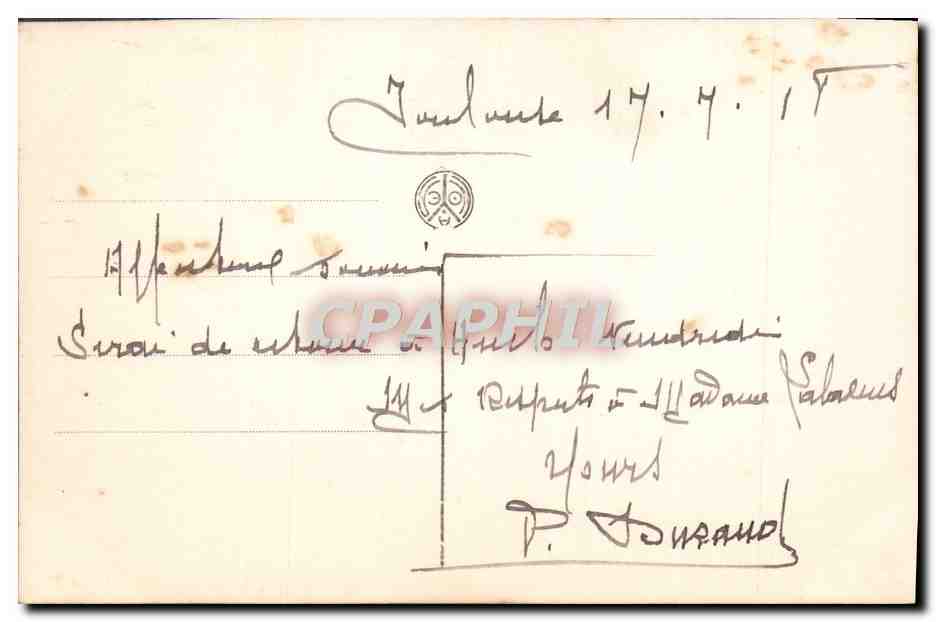 Toulouse 17.7.1
Affectueux souvenir
Serai de retour à Vendredi
Mes Respects à Madame
Yours
P. Durand
CPAPHIL